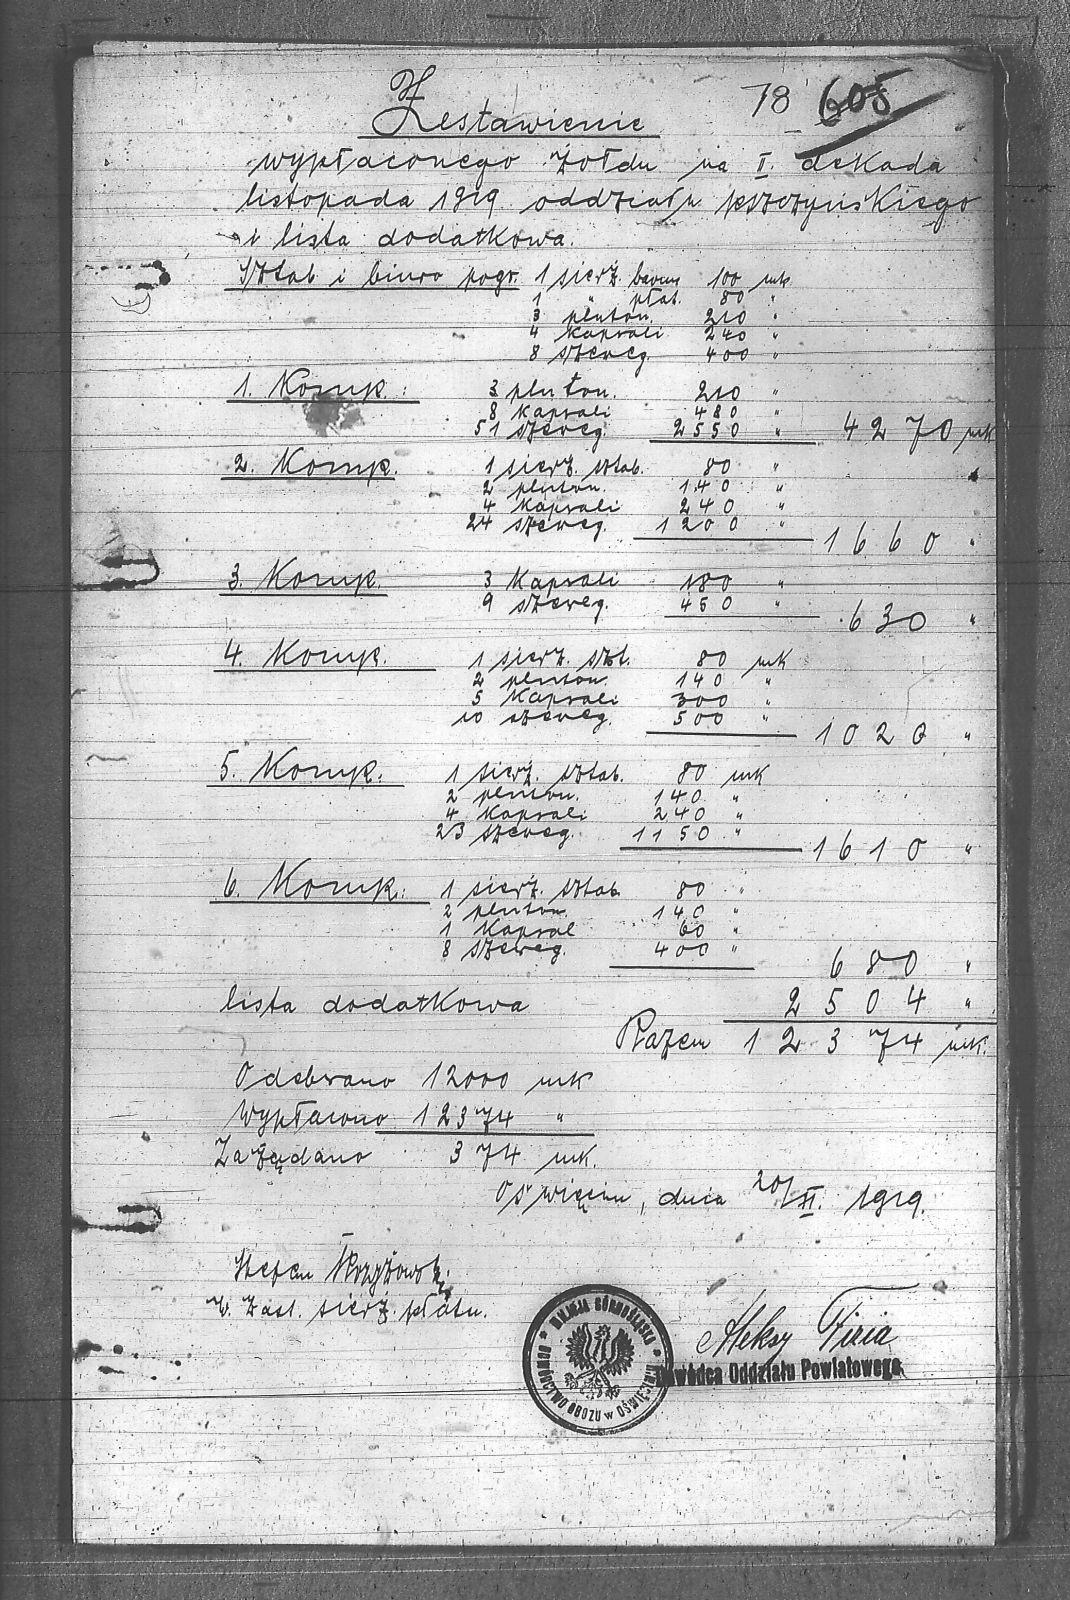 78 605
Zestawienie
wypłaconego żołdu na II. dekada
listopada 1919 oddziału pszczyńskiego
i lista dodatkowa.
Sztab i biuro pogr. 1 sierż. 100 mk
1 " płat. 80 "
3 pluton. 210 "
4 kaprali 240 "
8 szereg. 400 "
1. Komp.: 3 pluton. 210 "
8 kaprali 480 "
51 szereg. 2550 " 4270 mk
2. Komp. 1 sierż. sztab. 80 "
2 pluton. 140 "
4 kaprali 240 "
24 szereg. 1200 " 1660 "
3. Komp. 3 kaprali 180 "
9 szereg. 450 " 630 "
4. Komp. 1 sierż. szt. 80 mk
2 pluton. 140 "
5 kaprali 300 "
10 szereg. 500 " 1020 "
5. Komp. 1 sierż. sztab. 80 mk
2 pluton. 140 "
4 kaprali 240 "
23 szereg. 1150 " 1610 "
6. Komp: 1 sierż. sztab 80 "
2 pluton. 140 "
1 kapral 60 "
8 szereg. 400 " 680 "
lista dodatkowa 2504 "
Razem 12374 mk.
Odebrano 12000 mk
Wypłacono 12374 "
Zażądano 374 mk.
Oświęcim, dnia 20/XI. 1919.
Stefan
W. Zast. sierż. płatn.
Aleksy Fizia
Dowódca Oddziału Powiatowego
MILICJA GÓRNOŚLĄSKA
DOWÓDZTWO OBOZU w OŚWIĘCIMIU